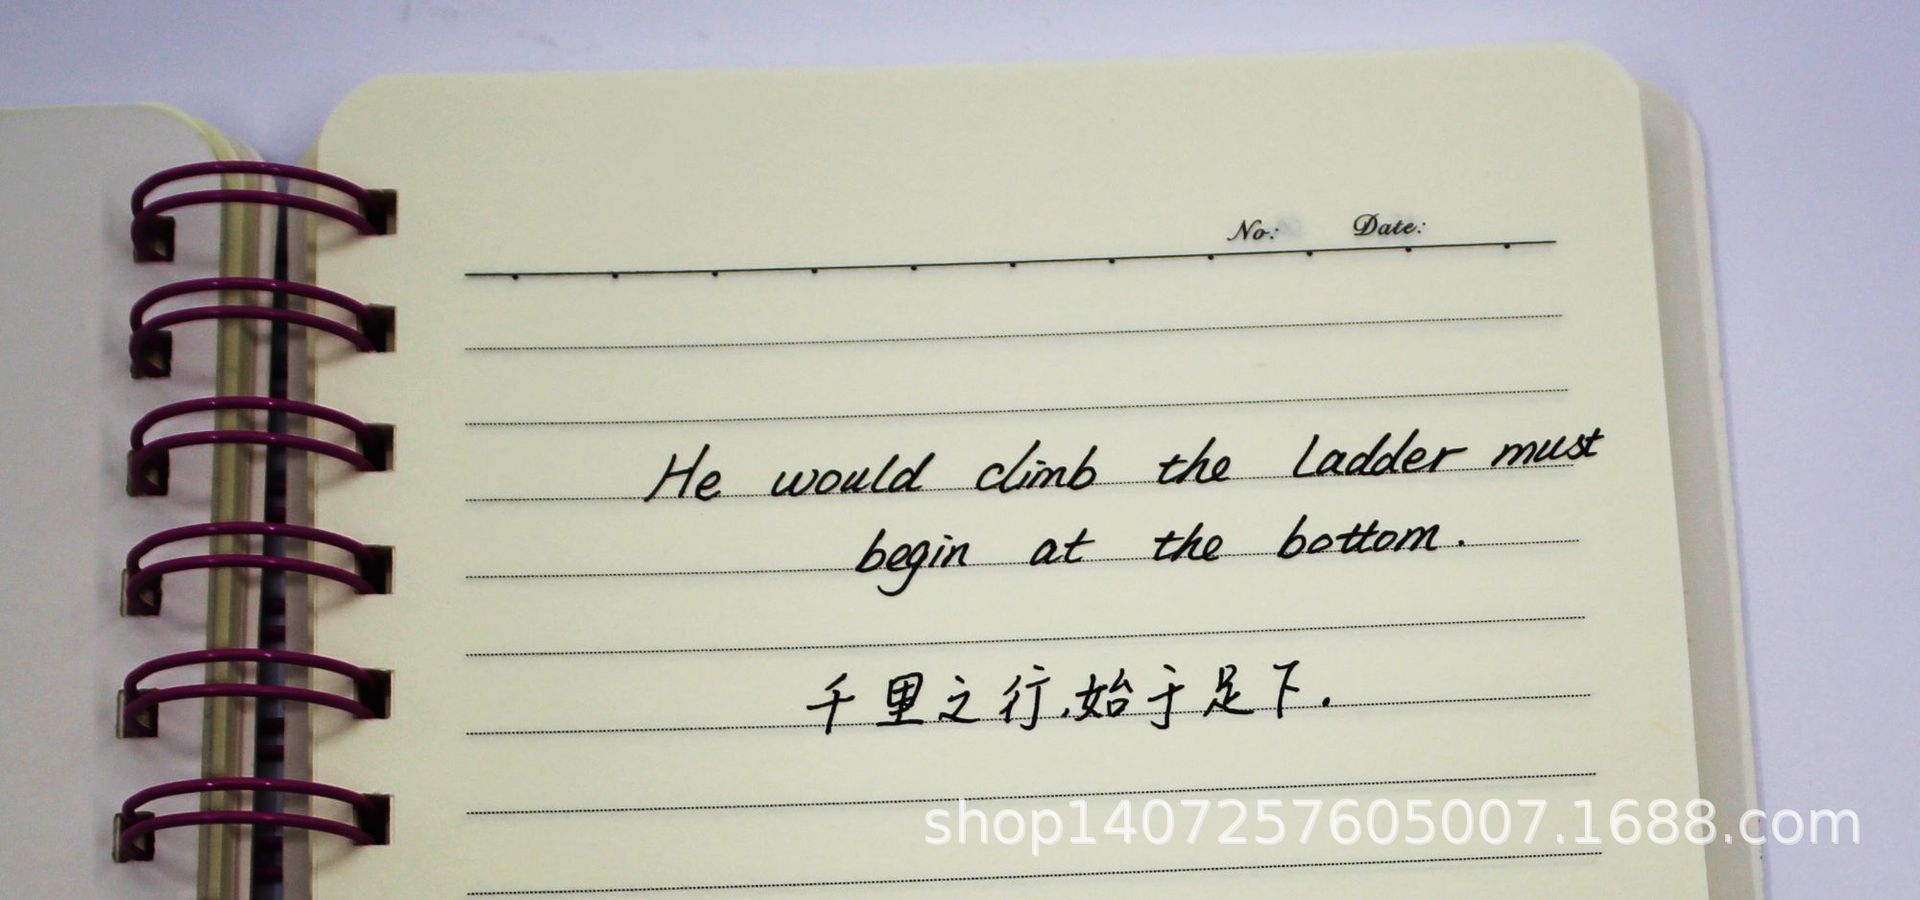 No: Date:
He would climb the ladder must
begin at the bottom.
千里之行,始于足下.
shop1407257605007.1688.com